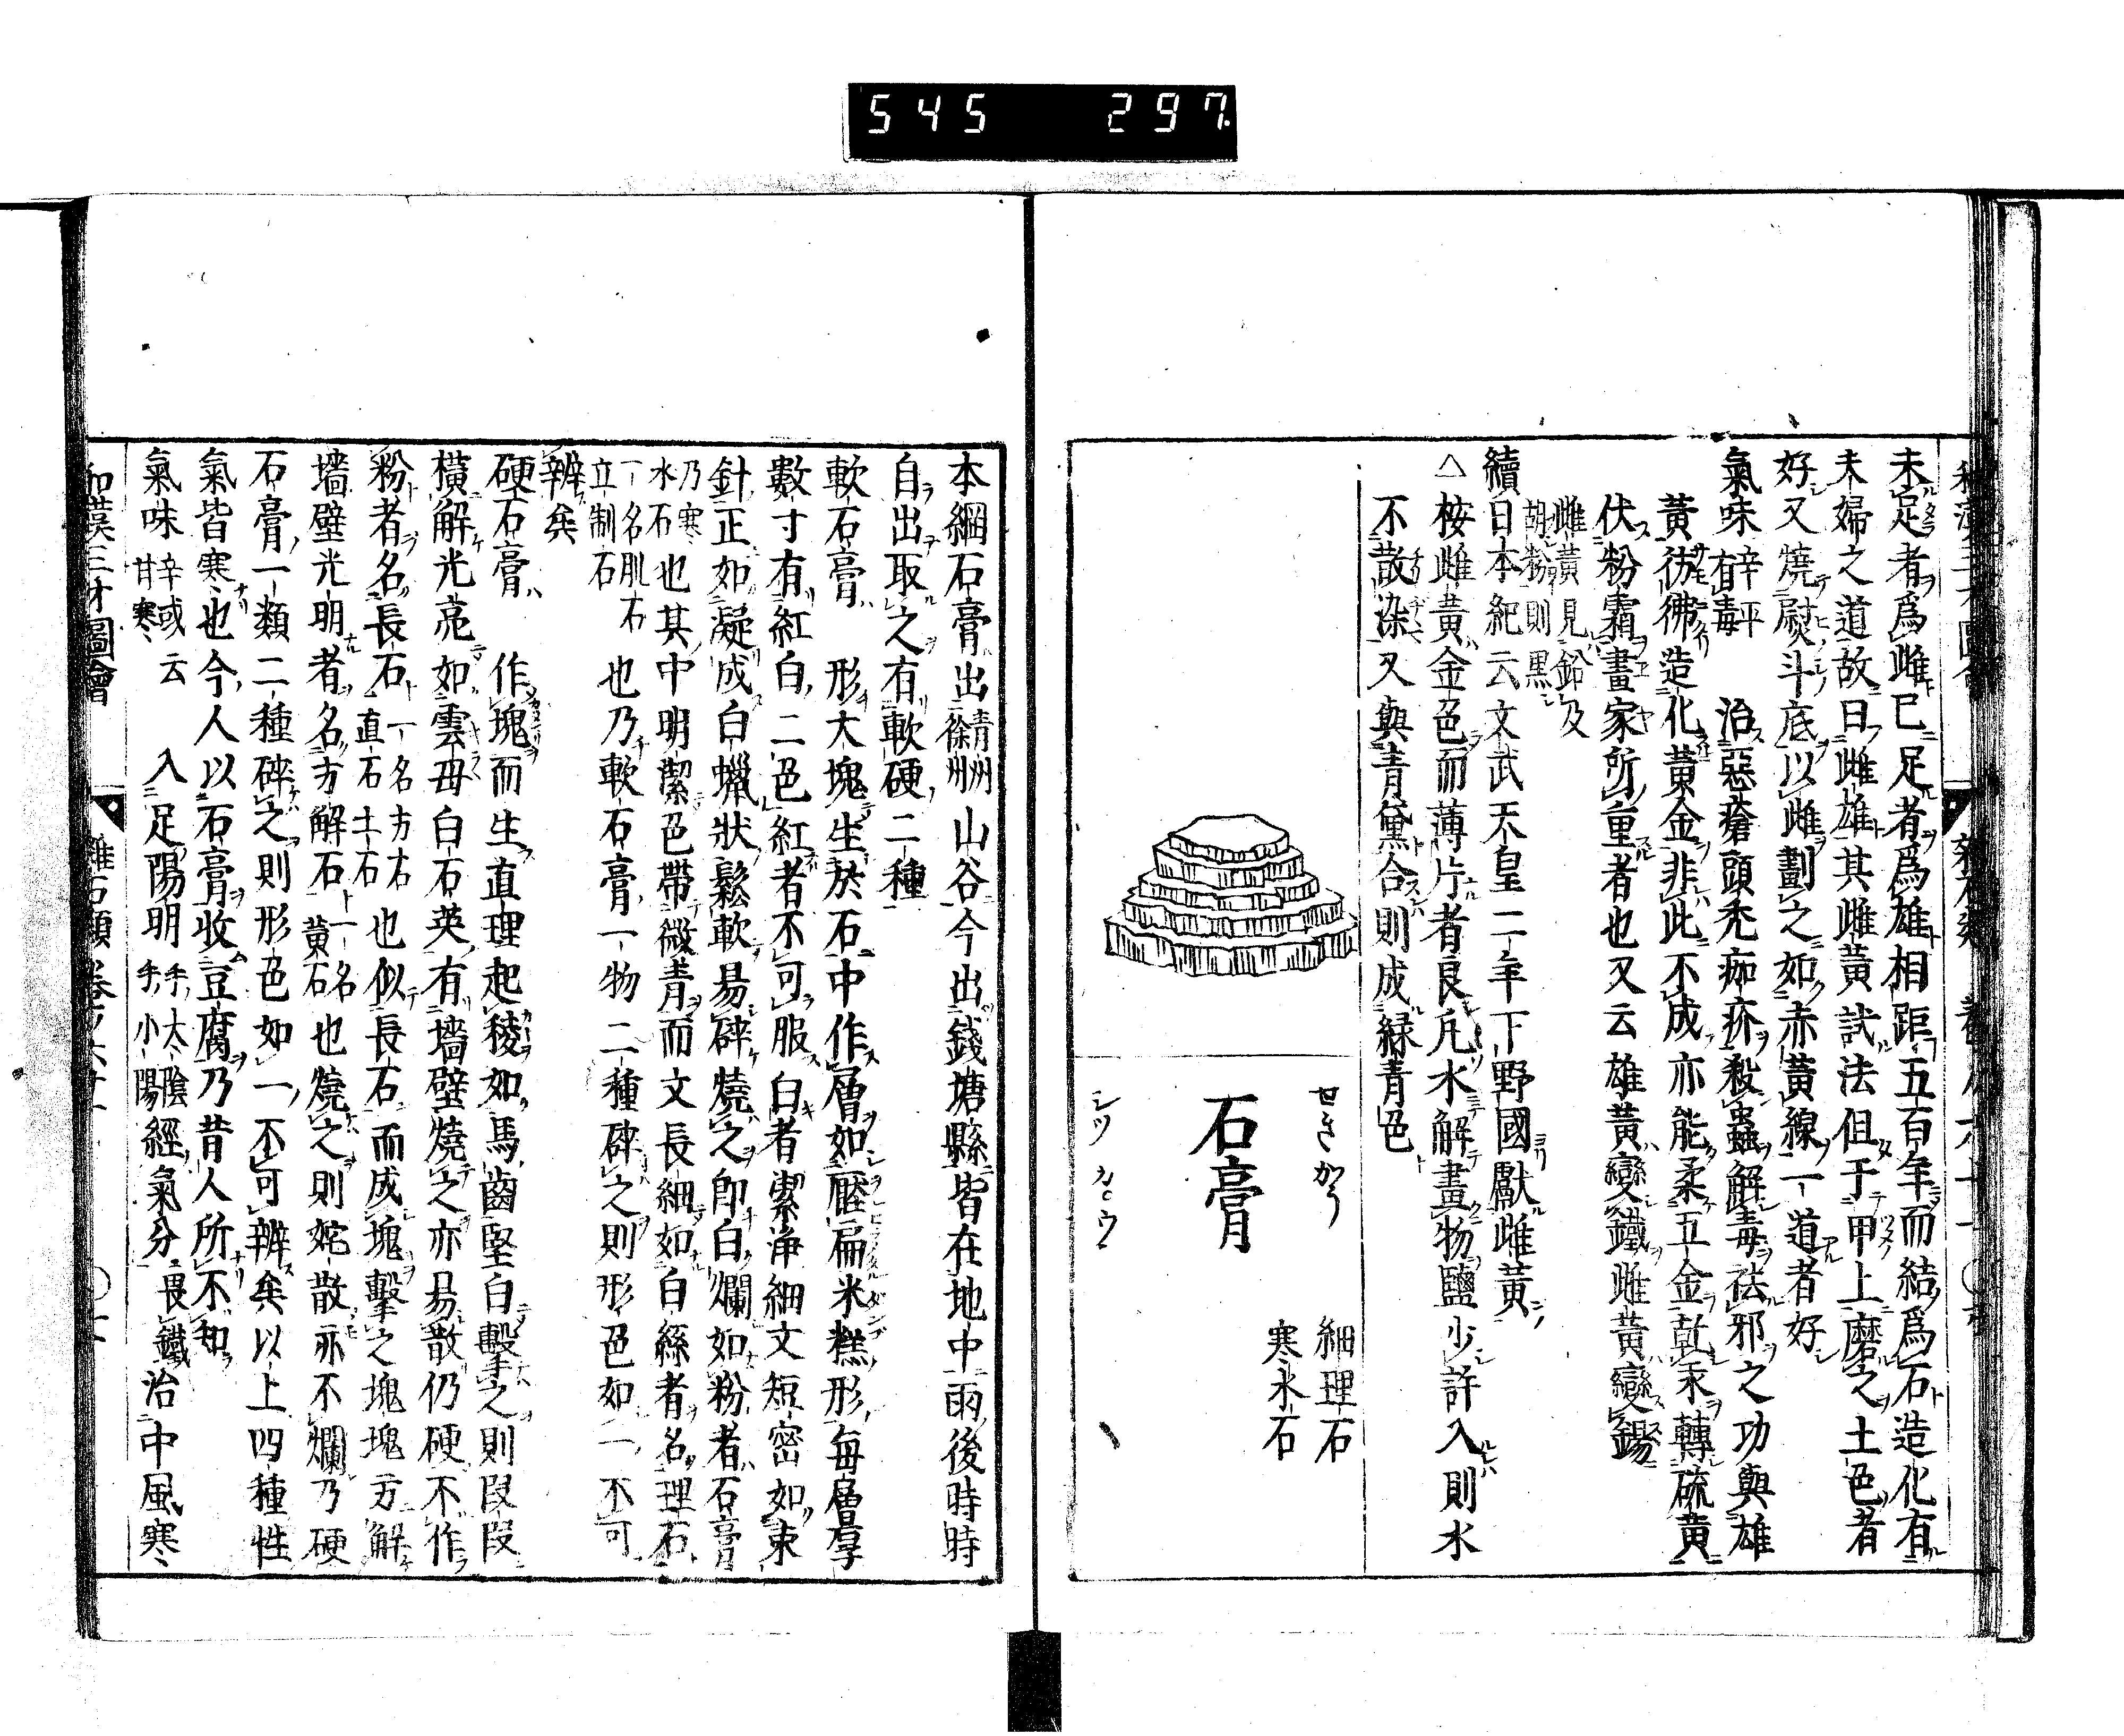 545 297
未足者爲雌已足者爲雄相距五百年而結爲石造化有
夫婦之道故曰雌雄其雌黃試法但于甲上磨之土色者
好又燒熨斗底以雌劃之如赤黃線一道者好
氣味 辛平有毒 治惡瘡頭禿痂疥殺蟲解毒祛邪之功與雄
黃彷彿造化黃金非此不成亦能柔五金乾汞轉硫黃
伏粉霜畫家所重者也又云雄黃變鐵雌黃變錫
雌黃見鉛及
胡粉則黑
續日本紀云文武天皇二年下野國獻雌黃
△桉雌黃金色而薄片者良凡水解畫物鹽少許入則水
不散染又與青黛合則成緑青色
せきかう
石膏
シツ カ゜ウ
細理石
寒水石
本綱石膏出 青州徐州 山谷今出錢塘縣皆在地中雨後時時
自出取之有軟硬二種
軟石膏 形大塊生於石中作層如壓扁米糕形每層厚
數寸有紅白二色紅者不可服白者潔淨細文短密如束
針正如凝成白蠟狀鬆軟易碎燒之即白爛如粉者石膏
乃寒水石也其中明潔色帶微青而文長細如白絲者名理石
一名肌石 立制石 也乃軟石膏一物二種碎之則形色如一不可
辨矣
硬石膏 作塊而生直理起稜如馬齒堅白擊之則段段
橫解光亮如雲母白石英有墻壁燒之亦易散仍硬不作
粉者名長石 一名方石 直石 土石 也似長石而成塊擊之塊塊方解
墻壁光明者名方解石 一名黃石 也燒之則姹散亦不爛乃硬
石膏一類二種碎之則形色如一不可辨矣以上四種性
氣皆寒也今人以石膏收豆腐乃昔人所不知
氣味 辛或云甘寒 入足陽明手太陰手小陽經氣分畏鐵治中風寒
和漢三才圖會 雜石類 卷六十一